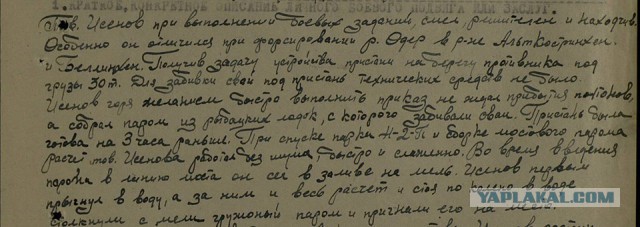 1. КРАТКОЕ, КОНКРЕТНОЕ ОПИСАНИЕ ЛИЧНОГО БОЕВОГО ПОДВИГА ИЛИ ЗАСЛУГ.
Тов. Исенов при выполнении боевых заданий, смел решителен и находчив.
Особенно он отличился при форсировании р. Одер в р-не Альт Кюстринхен.
и Беллинхен. Получив задачу устройства пристани на берегу противника под
грузы 30т. Для забивки свай под пристань технических средств не было.
Исенов горя желанием быстро выполнить приказ не ждал прибытия
а собрал паром из рыбацких лодок, с которого забивали сваи. Пристань была
готова на 3 часа раньше. При спуске парка Н-2-П и сборке мостового парома
расчет тов. Исенова работал без шума, быстро и слаженно. Во время введения
парома в линию моста он сел в заливе на мель. Исенов первым
прыгнул в воду, а за ним и весь расчет и стоя по колено в воде
столкнули с мели груженый паром и пригнали его на место.
YAPLAKAL.COM